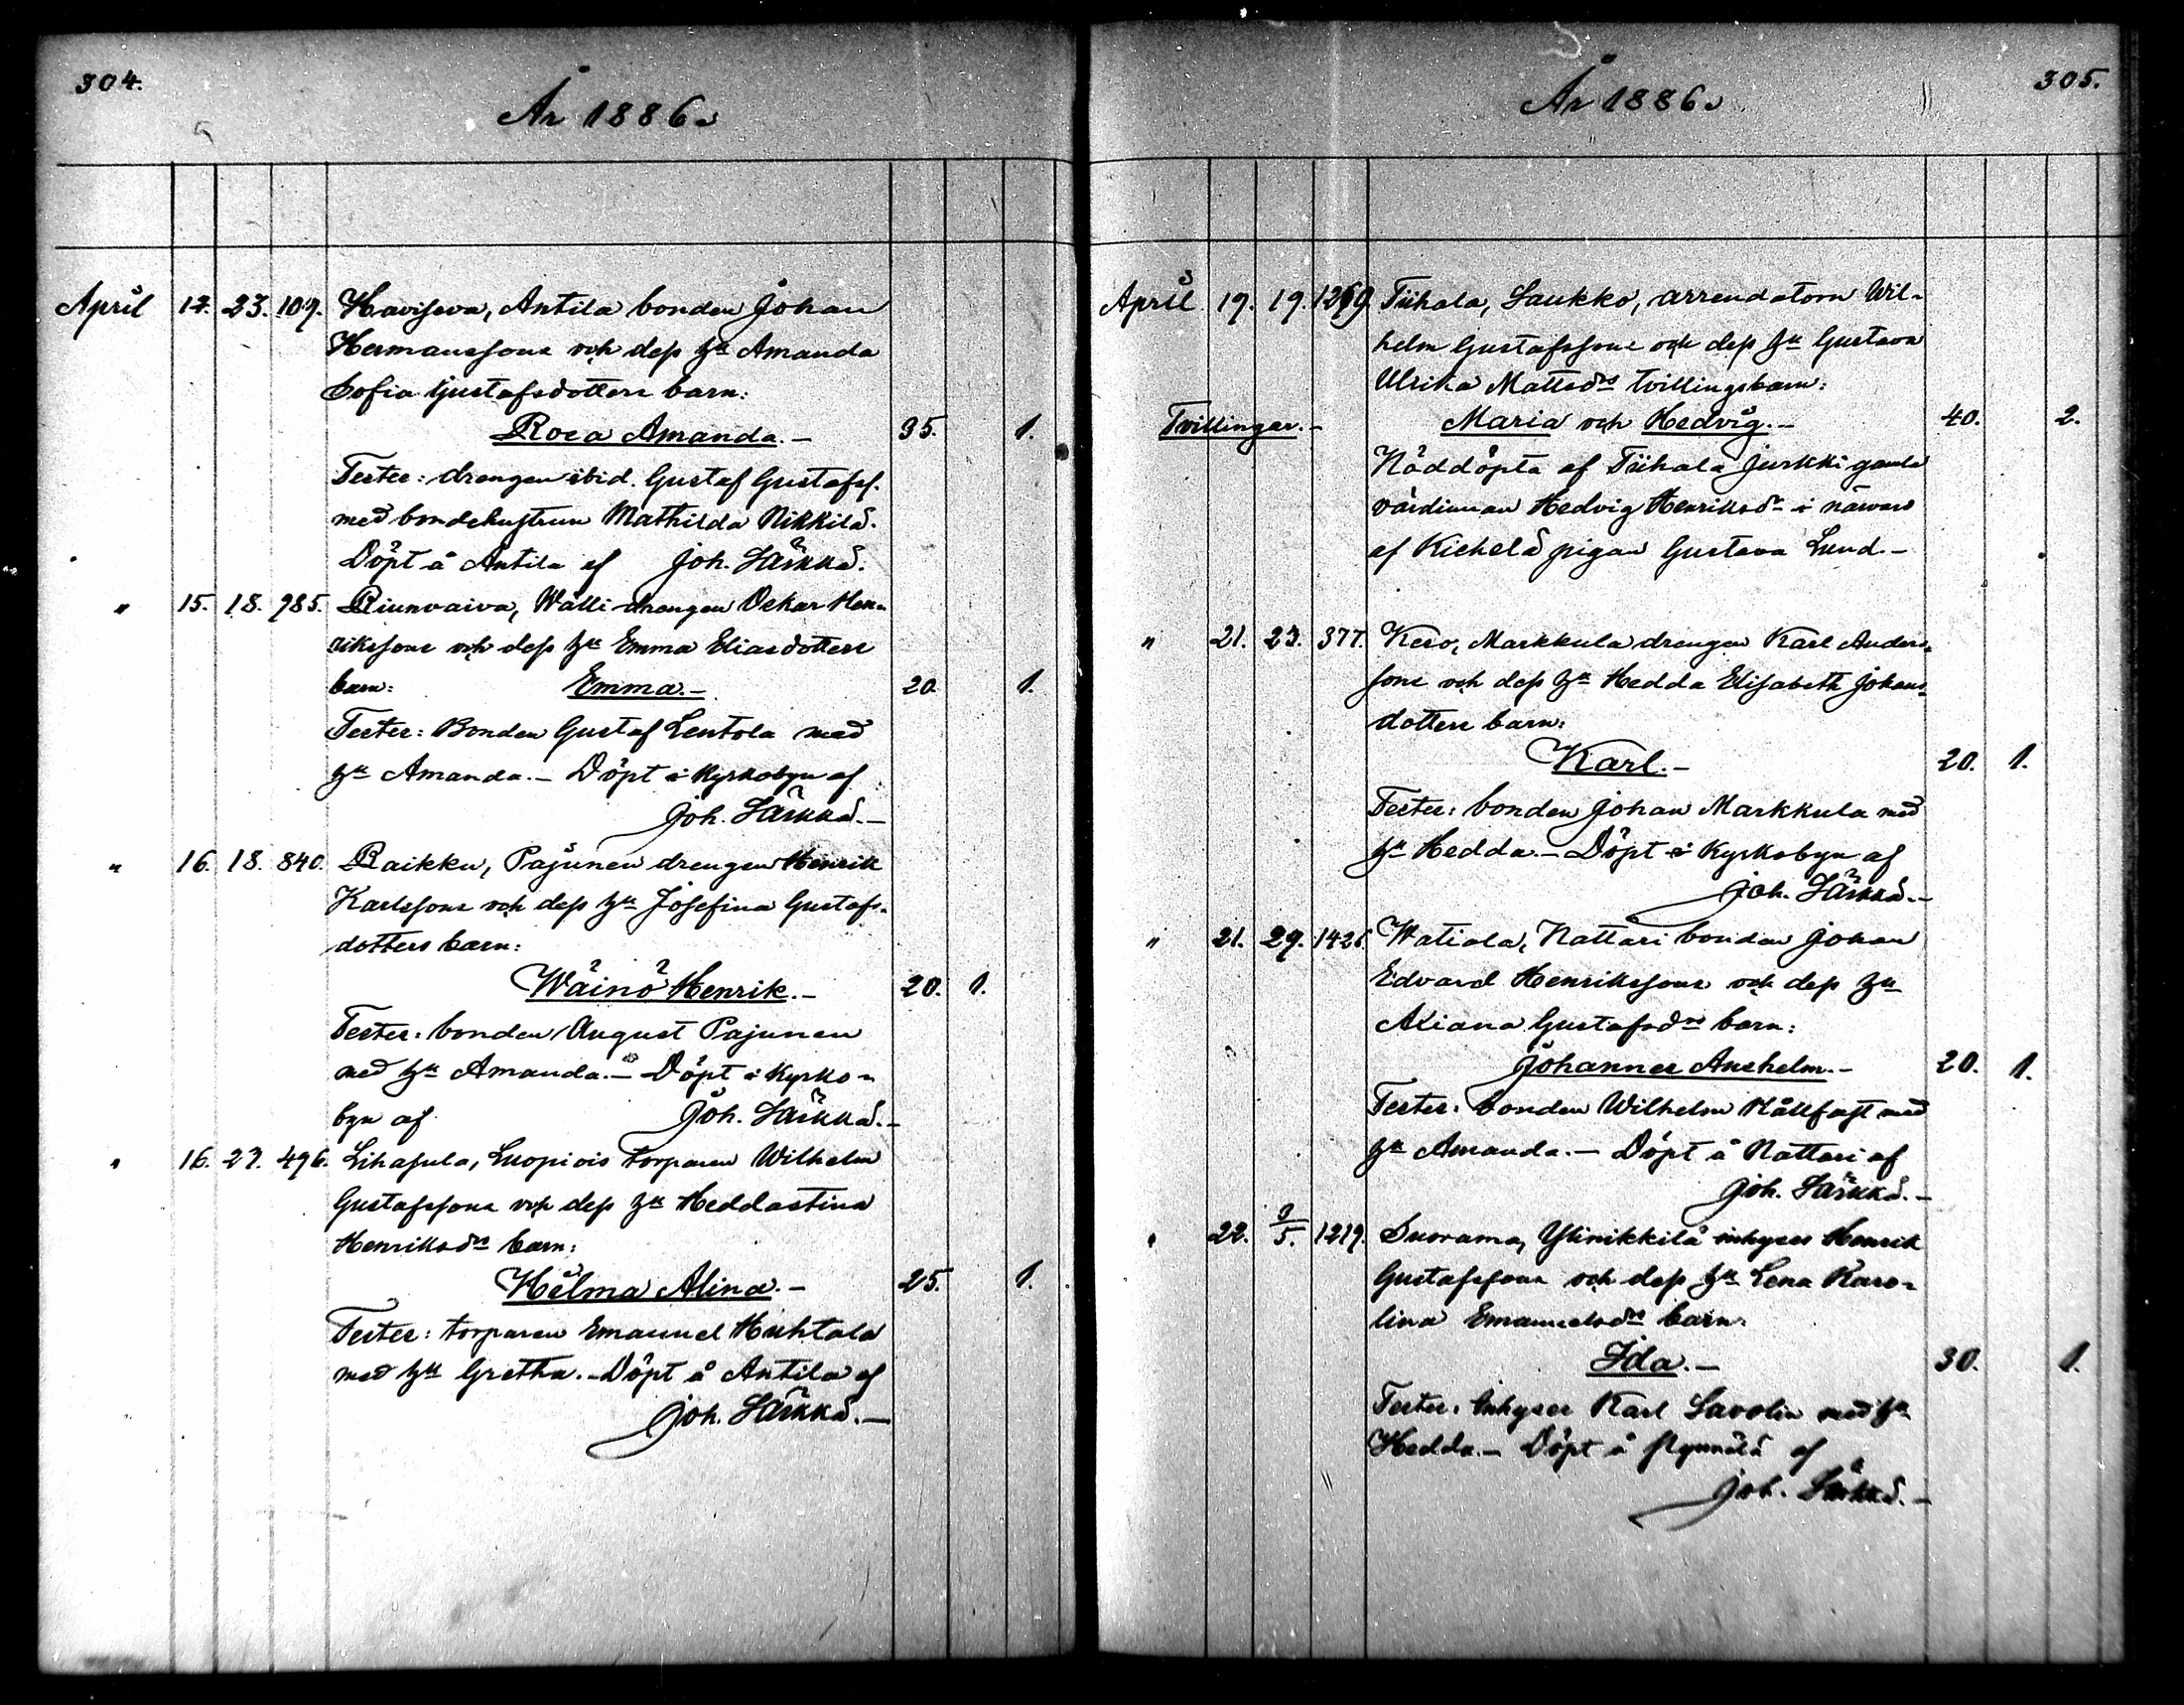 304.
År 1886.
April 12. 23. 109. Haviseva, Antila bonden Johan
Hermanssons och dess h:u Amanda
Sofia Gustafsdotters barn:
Rosa Amanda.– 35. 1.
Testes: drengen ibid. Gustaf Gustafss.
med bondehustrun Mathilda Nikkilä.
Döpt å Antila af Joh. Särkkä.
" 15. 18. 985. Riunvaiva, Wälli drengen Oskar Hen-
rikssons och dess h:u Emma Eliasdotters
barn: Emma.– 20. 1.
Testes: Bonden Gustaf Lentola med
h:u Amanda.– Döpt i Kyrkobyn af
Joh. Särkkä.–
" 16. 18. 840. Raikku, Pajunen drengen Henrik
Karlssons och dess h:u Josefina Gustafs-
dotters barn:
Wäinö Henrik.– 20. 1.
Testes: bonden August Pajunen
med h:u Amanda.– Döpt i Kyrko-
byn af Joh. Särkkä.–
" 16. 27. 496. Lihasula, Luopiois torparen Wilhelm
Gustafssons och dess h:u Heddastina
Henriksd:rs barn:
Hilma Alina.– 25. 1.
Testes: torparen Emanuel Huhtala
med h:u Gretha.– Döpt å Antila af
Joh. Särkkä.–
305.
År 1886.
April 19. 19. 1269 Tiihala, Laukko, arrendatorn Wil-
helm Gustafssons och dess h:u Gustava
Ulrika Mattsd:rs tvillingsbarn:
Tvillingar.– Maria och Hedvig.– 40. 2.
Nöddöpta af Tiihala Jurkki gamla
värdinnan Hedvig Henriksd:r i närvaro
af Kiehelä pigan Gustava Lund.–
" 21. 23. 377. Keso, Markkula drengen Karl Anders-
sons och dess h:u Hedda Elisabeth Johans-
dotters barn:
Karl.– 20. 1.
Testes: bonden Johan Markkula med
h:u Hedda.– Döpt i Kyrkobyn af
Joh. Särkkä.–
" 21. 29. 1426. Watiala, Nattari bonden Johan
Edvard Henrikssons och dess h:u
Ariana Gustafsd:rs barn:
Johannes Anshelm.– 20. 1.
Testes: bonden Wilhelm Hållfast med
h:u Amanda.– Döpt å Nattari af
Joh. Särkkä.–
" 22. 9/5. 1219. Suorama, Ylinikkilä inhyses Henrik
Gustafssons och dess h:u Lena Karo-
lina Emanuelsd:rs barn:
Ida.– 30. 1.
Testes: Inhyses Karl Savolin med h:u
Hedda.– Döpt å af
Joh. Särkkä.–